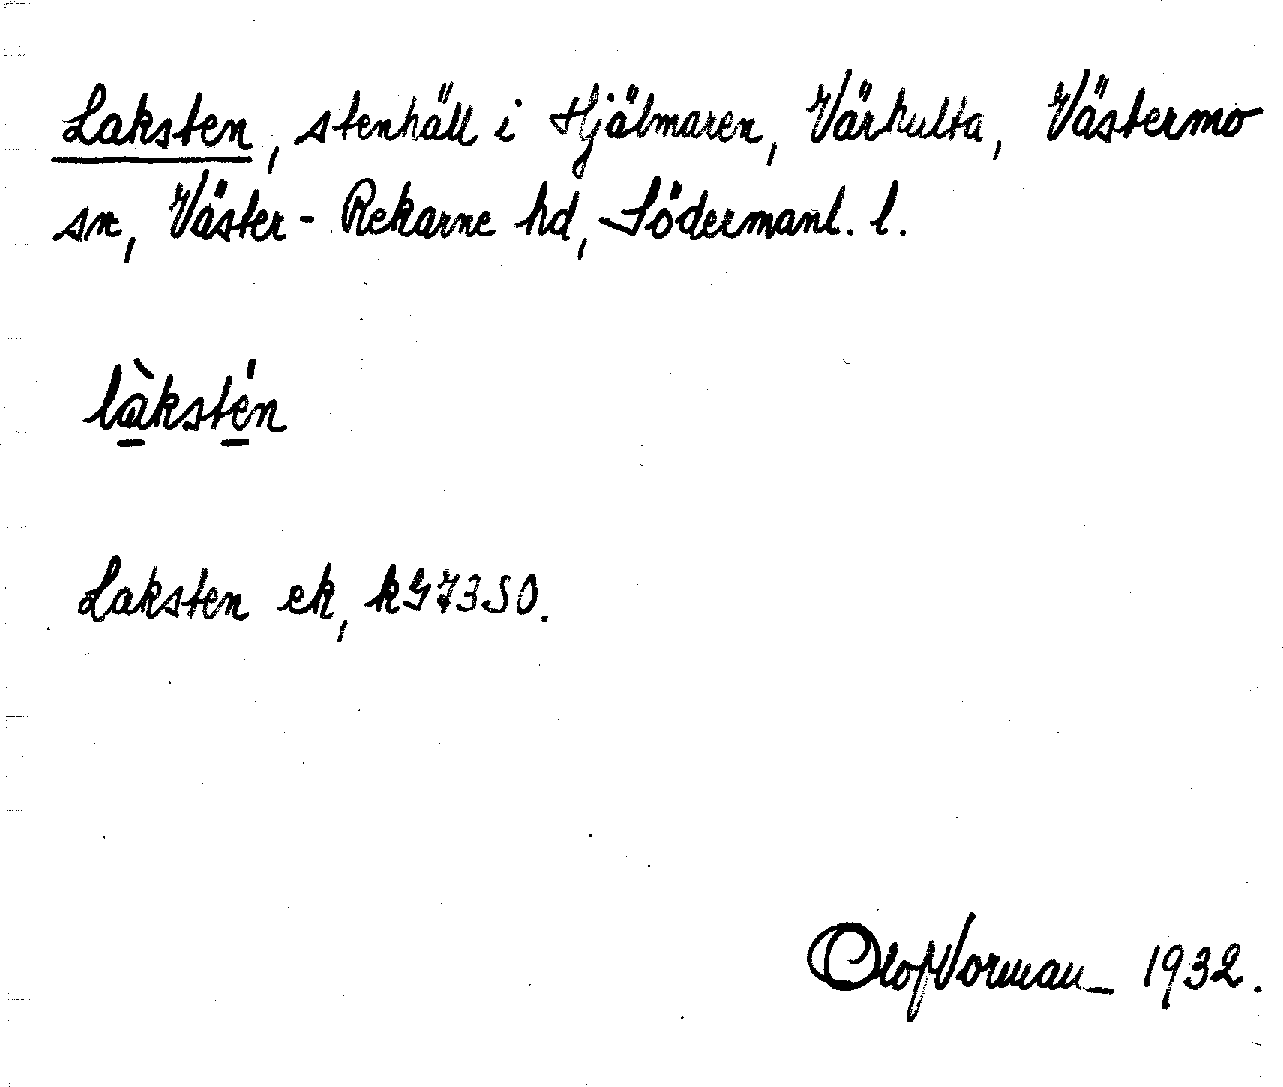 Laksten, stenhäll i Hjälmaren, Värhulta, Västermo
sn, Väster-Rekarne hd, Södermanl. l.
làkstén
Laksten ek, k97350.
Olof Norman 1932.